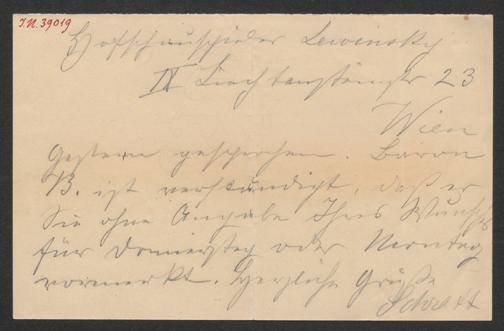 I.N. 39019
Hofschauspieler Lewinsky
IX Liechtensteinstr 23
Wien
Gestern gesprochen. Baron
B. ist verständigt, daß er
Sie ohne Angabe Ihres Wunsches
für Donnerstag oder Montag
vormerkt. Herzliche Grüße